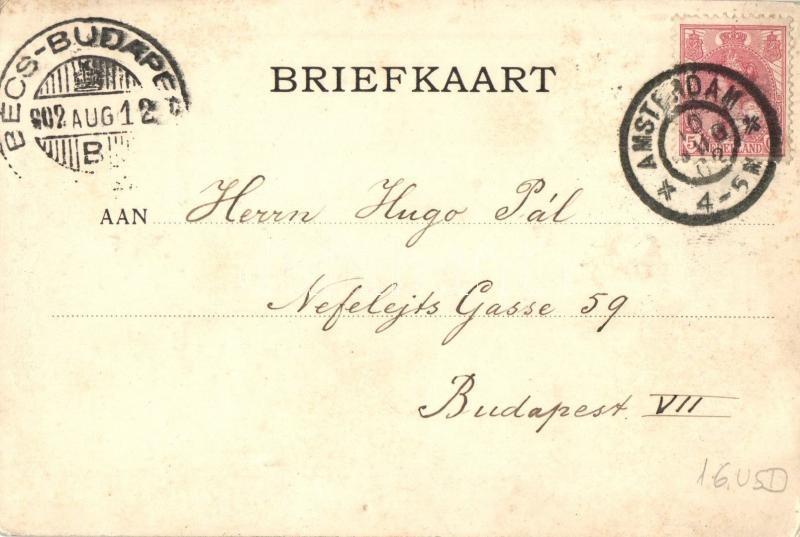 BÉCS-BUDAPES
902 AUG 12
B
BRIEFKAART
NEDERLAND
AMSTERDAM
4-5 N
AAN Herrn Hugo Pál
Nefelejts Gasse 59
Budapest VII
16.USD